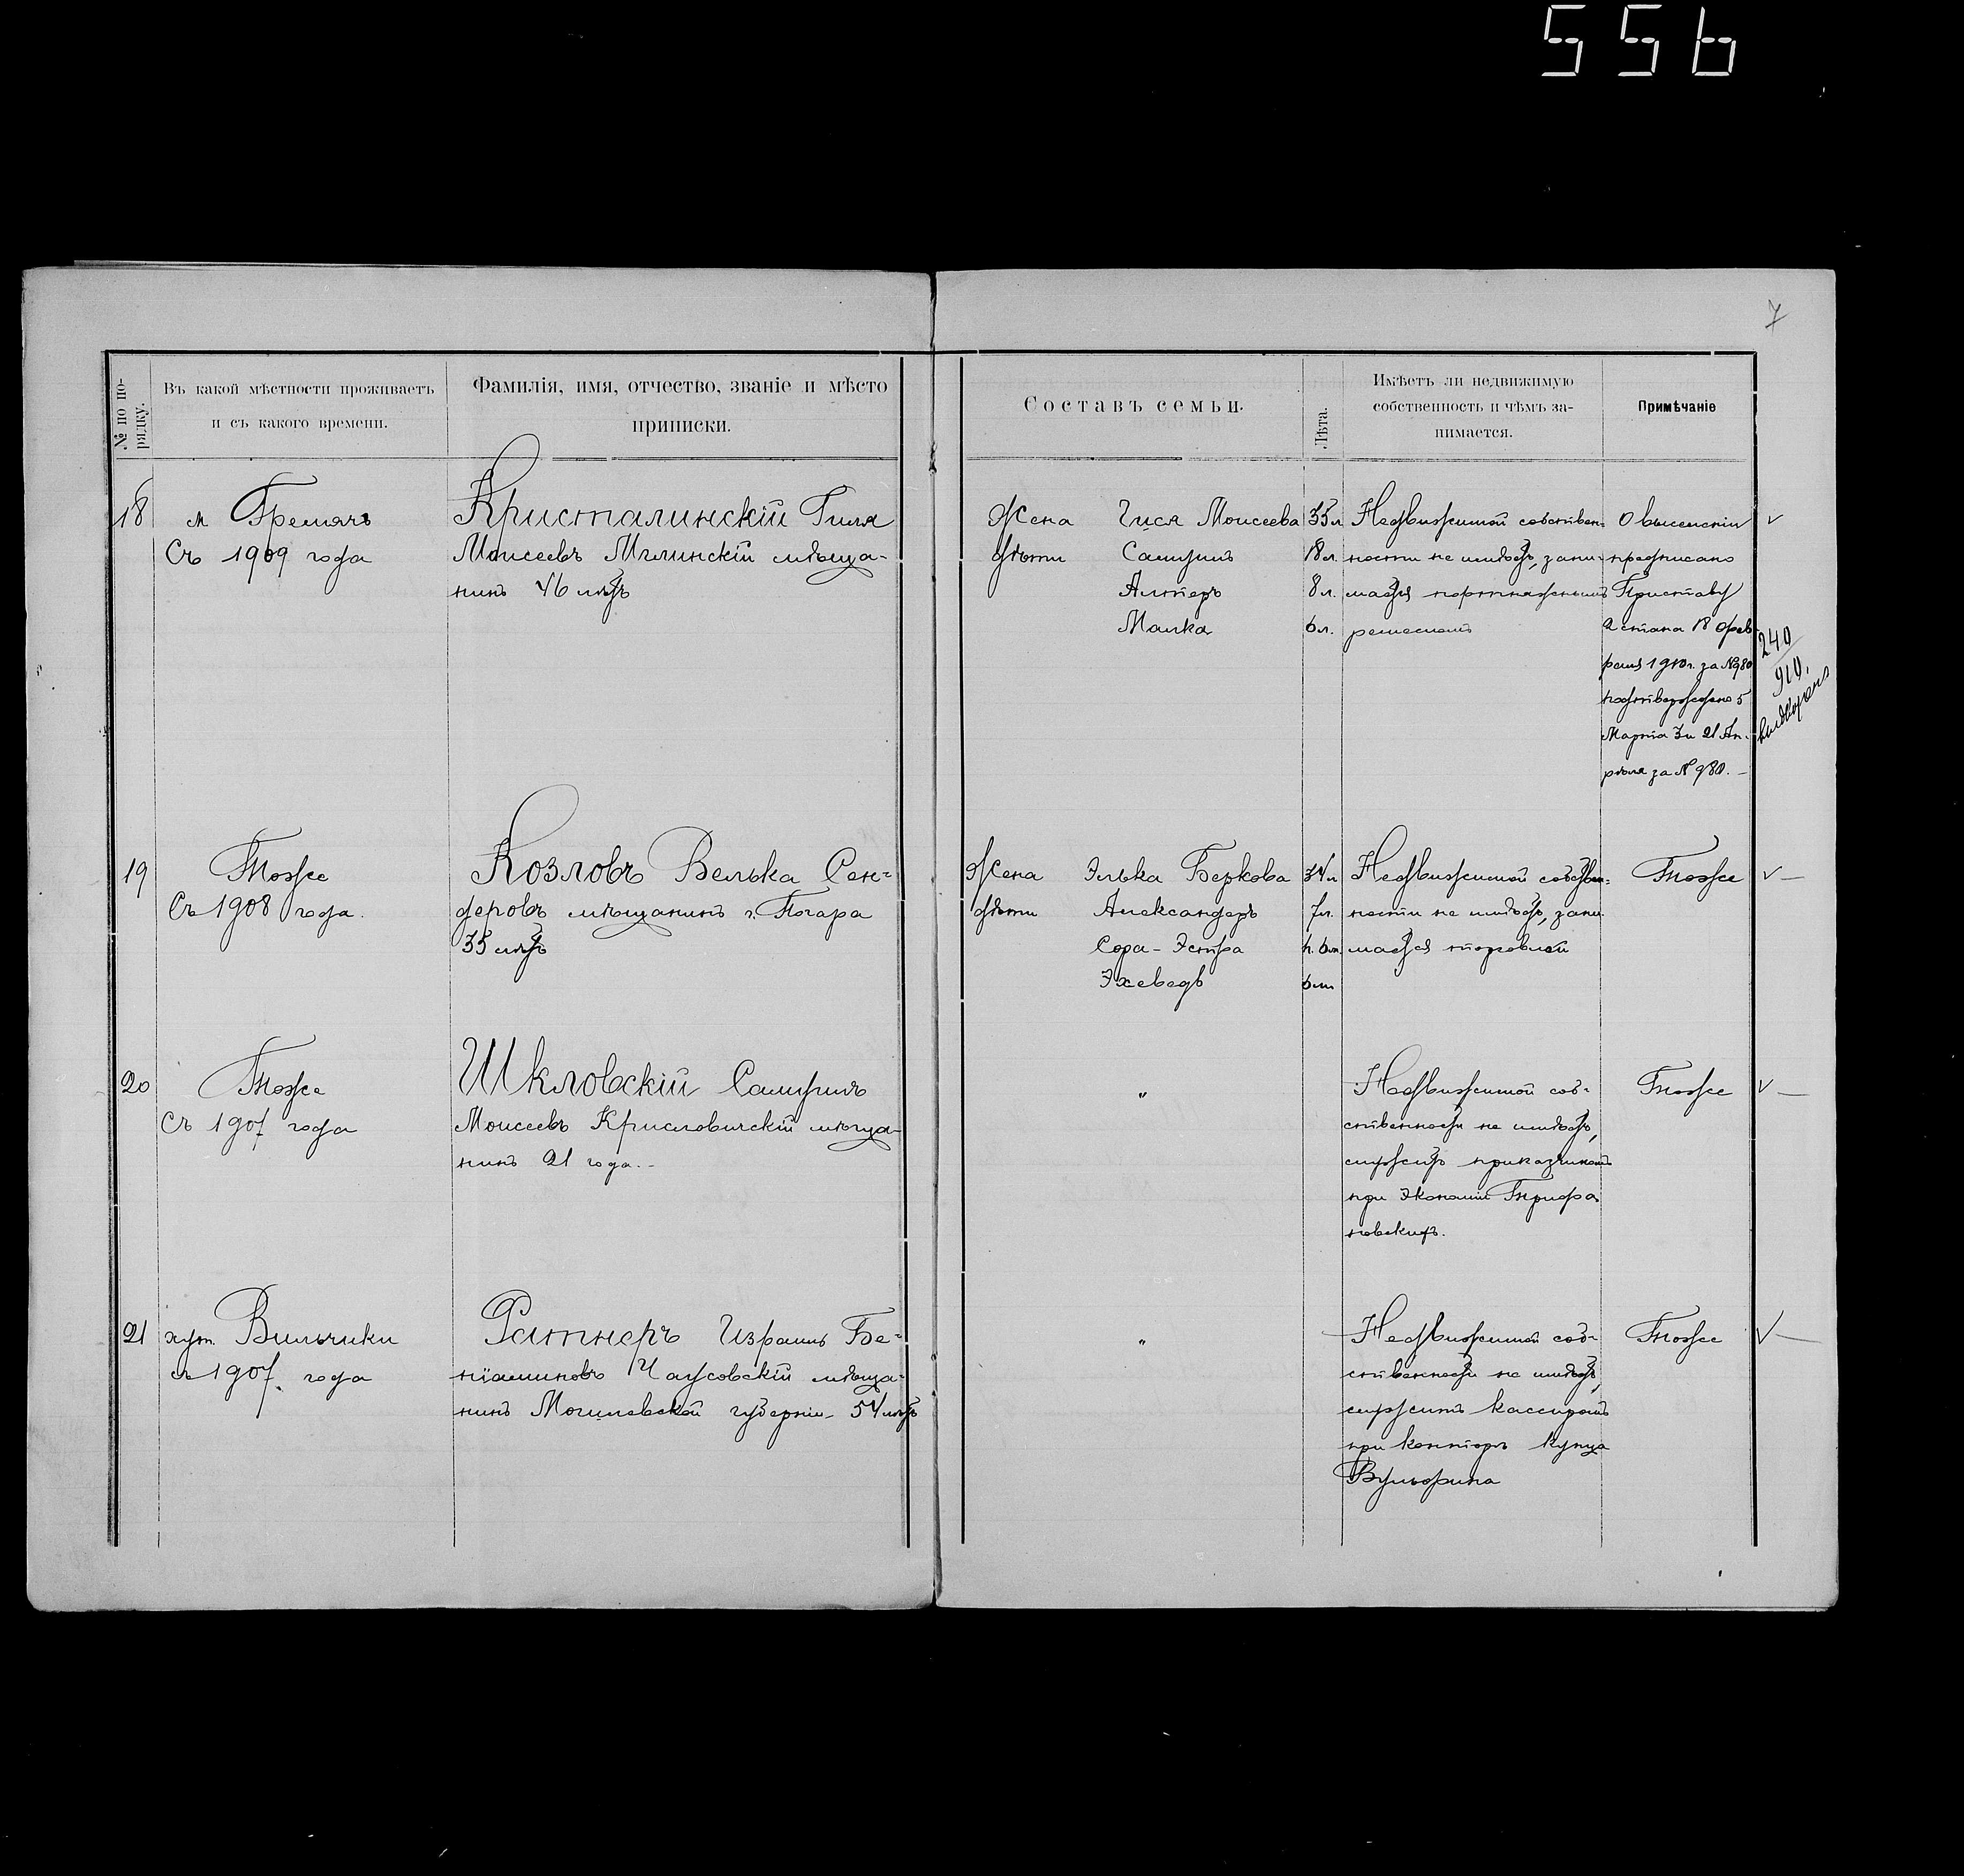 556
7
№ по по-
рядку.
Въ какой мѣстности проживаетъ
и съ какого времени.
Фамилія, имя, отчество, званіе и мѣсто
приписки.
Составъ семьи.
Лѣта.
Имѣетъ ли недвижимую
собственность и чѣмъ за-
нимается.
Примѣчаніе
18
м Гремячъ
Съ 1909 года
Кристалинскій Гиля
Моисеевъ Мглинскій мѣща-
нинъ 46 лѣтъ
Жена Гися Моисеева 35 л
дѣти Самуилъ 18 л.
Алтеръ 8 л.
Малка 6 л.
Недвижимой собствен-
ности не имѣетъ, зани-
мается портняжнымъ
ремесломъ
О выселеніи
предписано
Приставу
2 стана 18 фев-
раля 1910 г. за №980
подтверждено 5
Марта и 21 Ап-
рѣля за № 980. –
240
910.
выдворенъ
19
Тоже
Съ 1908 года.
Козловъ Велька Сен-
деровъ мѣщанинъ г. Погара
35 лѣтъ
Жена Элька Беркова 34 л
дѣти Александръ 7 л.
Сора-Эстра
Эхеведъ
Недвижимой собствен-
ности не имѣетъ, зани-
мается торговлей
Тоже
20
Тоже
Съ 1907 года
Шкловскій Самуилъ
Моисеевъ Крисловичскій мѣща-
нинъ 21 года. -
"
Недвижимой соб-
ственности не имѣетъ,
служитъ приказчикомъ
при Экономіи Трифа
новскихъ.
Тоже
21
хут. Вильчики
съ 1907. года
Ратнеръ Израиль Бе-
ніаминовъ Чаусовскій мѣща-
нинъ Могилевской губерніи - 54 лѣтъ
"
Недвижимой соб-
ственности не имѣетъ,
служитъ кассиромъ
при конторѣ купца
Вульфина
Тоже